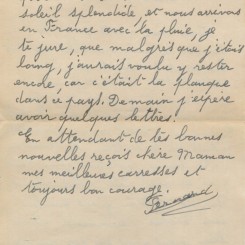 soleil splendide, et nous arrivons
en France avec la pluie, je
te jure, que malgrès que j'étais
loing, j'aurais voulu y rester
encore, car c'était la planque
dans ce pays. Demain j'espère
avoir quelques lettres!
En attendant de tes bonnes
nouvelles reçois chère Maman
mes meilleures carresses et
toujours bon courage.
Fernand